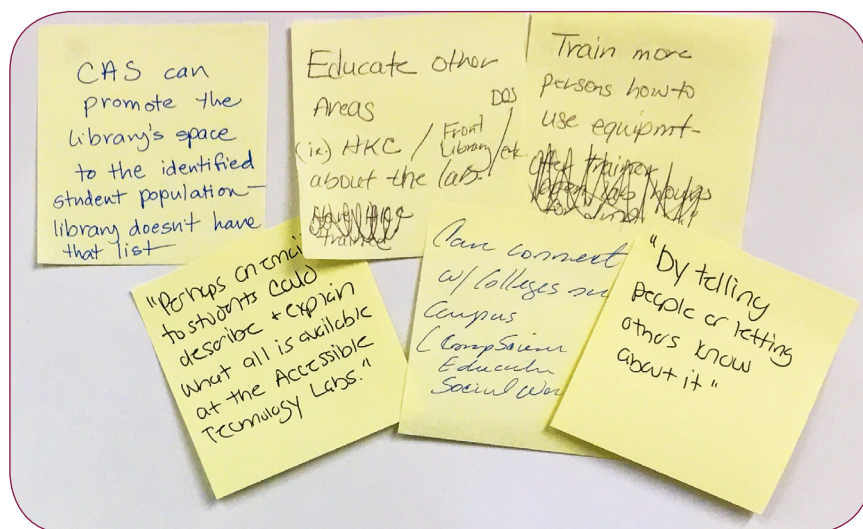 CAS can
promote the
library's space
to the identified
student population—
library doesn't have
that list
Educate other
Areas
(ie.) HKC / Front Library / DOS / etc
about the lab.
Train more
persons how to
use equipmt
"Perhaps an email
to students could
describe + explain
what all is available
at the Accessible
Technology Labs."
Can connect
w/ Colleges on
Campus
(CompScience
Education
Social Wor
"By telling
people or letting
others know
about it"